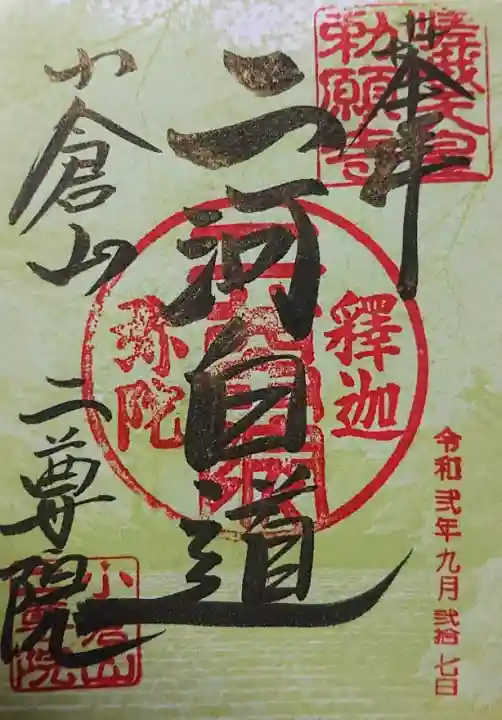 奉拝
嵯峨天皇
勅願寺
二河白道
釋迦
弥陀
令和弐年九月弐拾七日
小倉山
二尊院
小倉山
二尊院